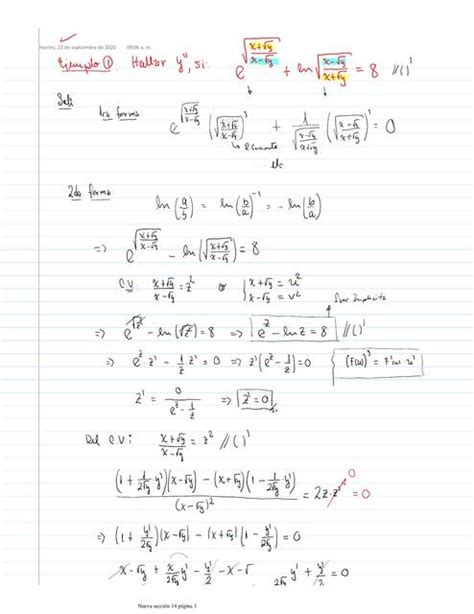 martes, 22 de septiembre de 2020 09:06 a. m.
Ejemplo ① Hallar y'', si: e^{√((x+√y)/(x-√y))} + ln √((x-√y)/(x+√y)) = 8 //()'
Sol:
1ra forma: e^{√((x+√y)/(x-√y))} (√((x+√y)/(x-√y)))' + 1/√((x-√y)/(x+√y)) (√((x-√y)/(x+√y)))' = 0
↳ cociente
etc
2da forma: ln(a/b) = ln(b/a)^{-1} = -ln(b/a)
=> e^{√((x+√y)/(x-√y))} - ln(√((x+√y)/(x-√y))) = 8
C.V: (x+√y)/(x-√y) = z² o { x+√y = u² x-√y = v²
=> e^{√z²} - ln(√z²) = 8 => e^z - ln z = 8 //()'
=> e^z · z' - 1/z z' = 0 => z'(e^z - 1/z) = 0 (F(u))' = F'(u) · u'
z' = 0/(e^z - 1/z) => z' = 0
Del C.V: (x+√y)/(x-√y) = z² //()'
((1 + 1/(2√y) y')(x-√y) - (x+√y)(1 - 1/(2√y) · y'))/(x-√y)² = 2z·z' 0 = 0
=> (1 + y'/(2√y))(x-√y) - (x+√y)(1 - y'/(2√y)) = 0
x - √y + x/(2√y) y' - y'/2 - x - √ 2√y y'/2 = 0
Nueva sección 14 página 1